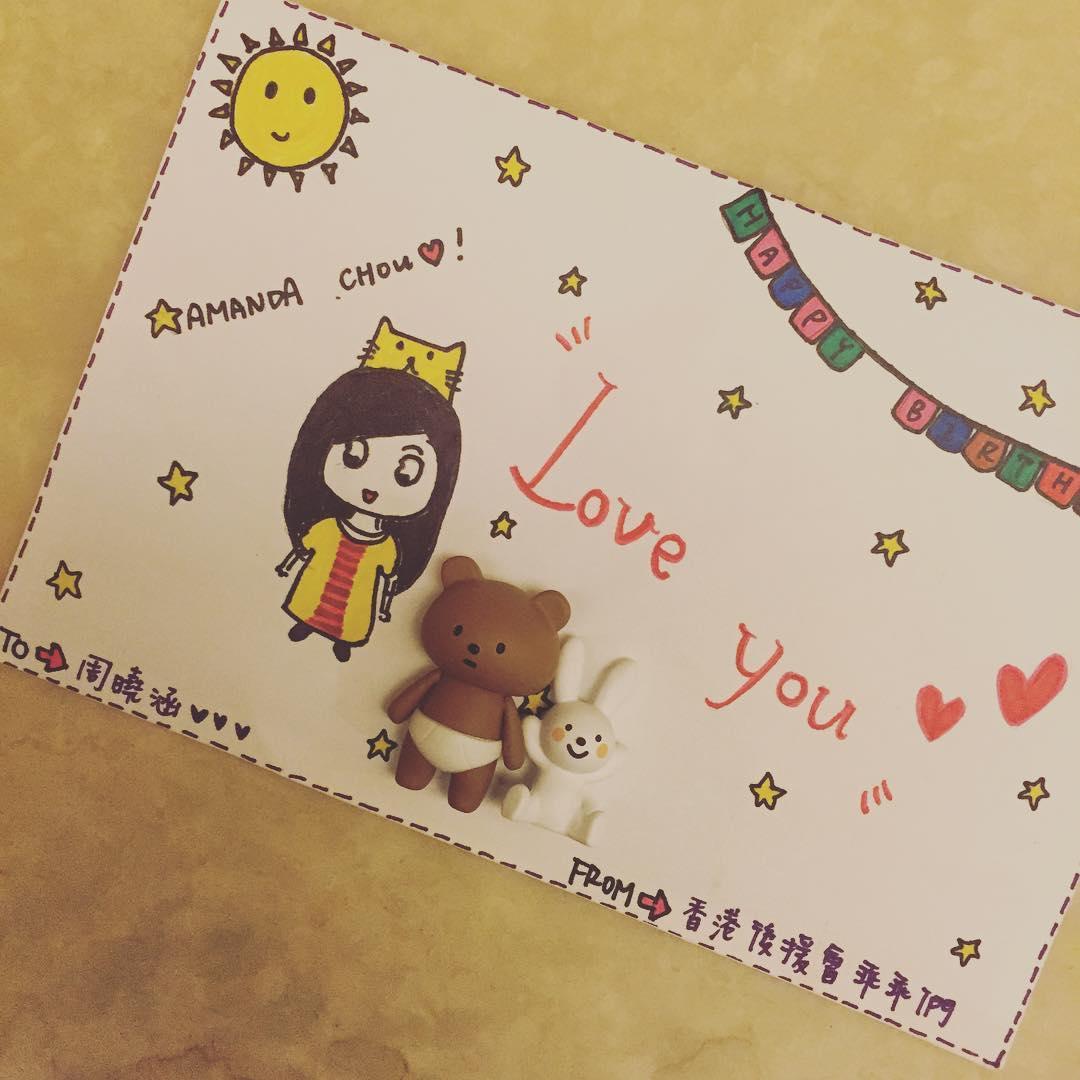 AMANDA CHOU♥!
HAPPY BIRTH
Love
you
TO → 周曉涵♥♥♥
FROM → 香港後援會乖乖Ypg